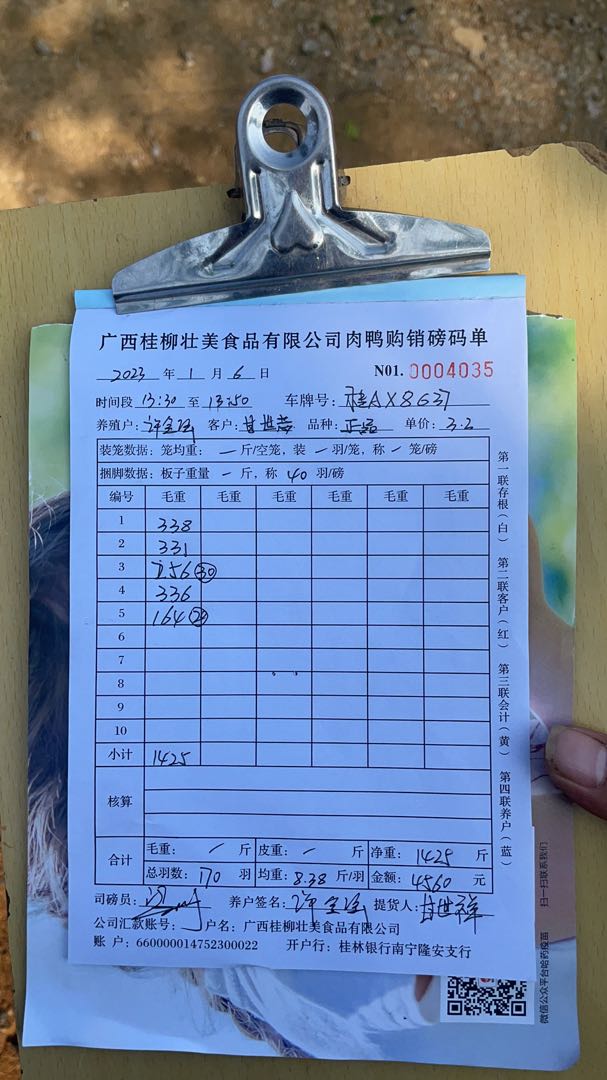 广西桂柳壮美食品有限公司肉鸭购销磅码单
2023 年 1 月 6 日 N01. 0004035
时间段 13:30 至 13:50 车牌号: 桂AX8G37
养殖户: 客户: 甘世 品种: 正品 单价: 3.2
装笼数据: 笼均重: — 斤/空笼, 装 — 羽/笼, 称 — 笼/磅
捆脚数据: 板子重量 — 斤, 称 40 羽/磅
编号 毛重 毛重 毛重 毛重 毛重 毛重
1 338
2 331
3 256 30
4 336
5 164 20
6
7
8
9
10
小计 1425
核算
合计 毛重: — 斤 皮重: — 斤 净重: 1425 斤
总羽数: 170 羽 均重: 8.38 斤/羽 金额: 4560 元
司磅员: 养户签名: 提货人: 甘世祥
公司汇款账号: 户名: 广西桂柳壮美食品有限公司
账 户: 660000014752300022 开户行: 桂林银行南宁隆安支行
第一联存根(白) 第二联客户(红) 第三联会计(黄) 第四联养户(蓝)
微信公众平台哈药疫苗 扫一扫联系我们